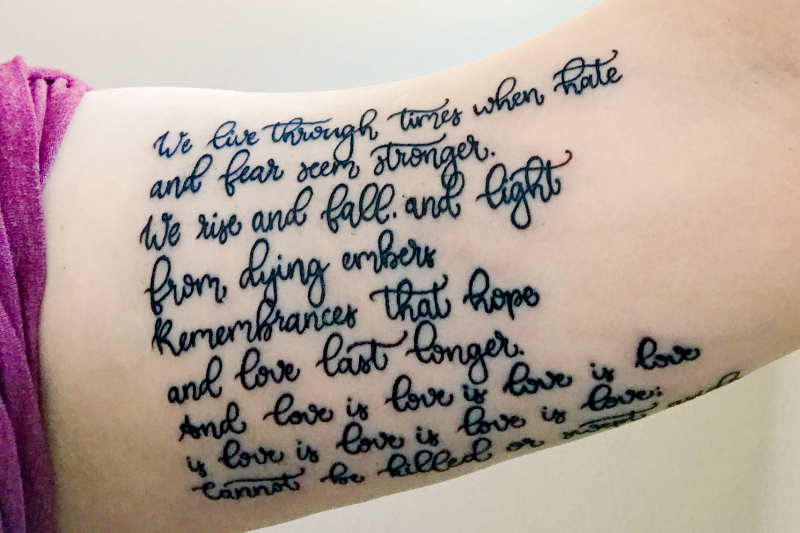 We live through times when hate
and fear seem stronger.
We rise and fall. and light
from dying embers
Remembrances that hope
and love last longer.
And love is love is love is love
is love is love is love is love;
cannot be killed or swept